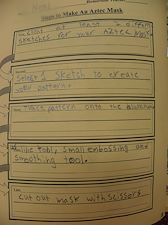 Steps to Make An Aztec Mask
at least 2 different
sketches for your Aztec Mask
Select a sketch to create
your pattern.
Trace pattern onto the aluminum
Use tools, small embossing and
smoothing tool.
cut out mask with scissors